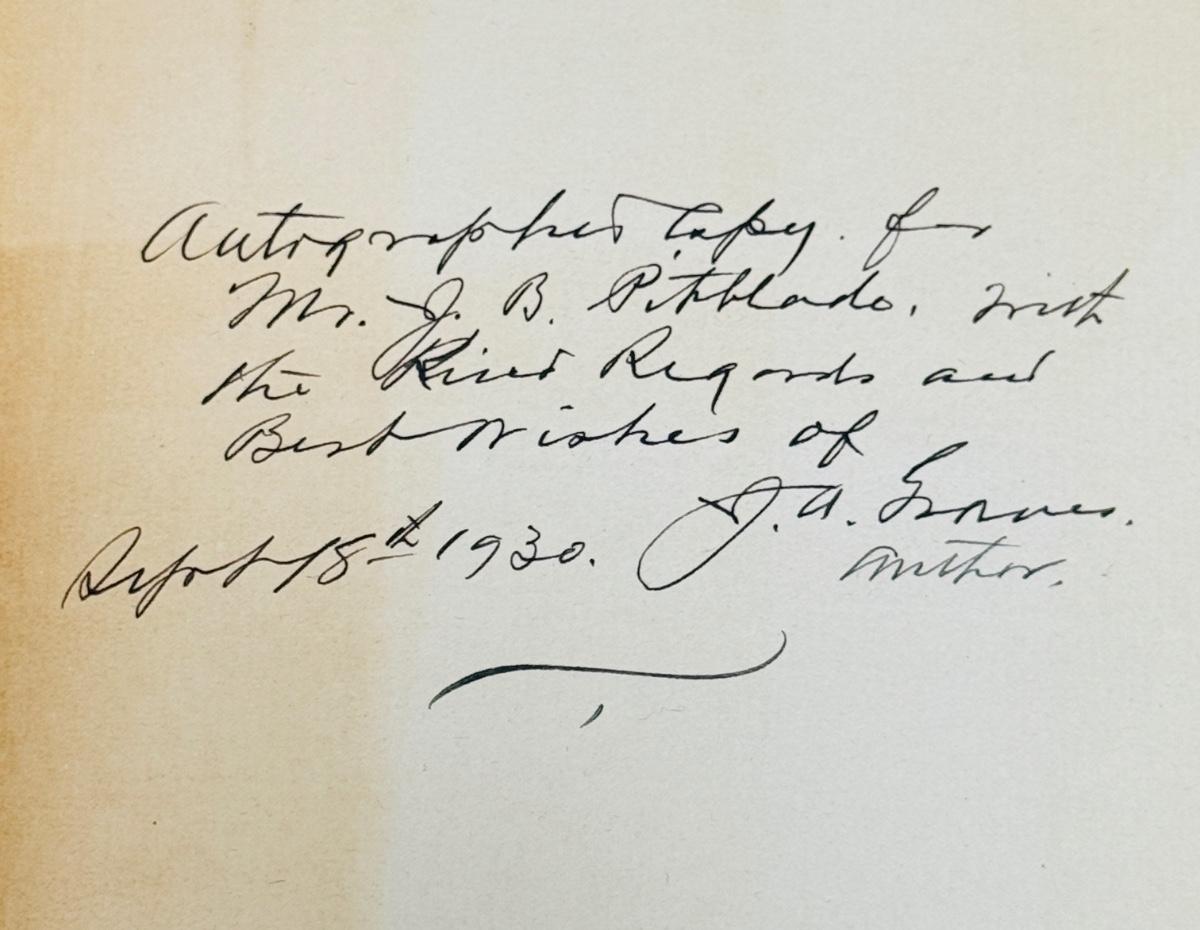 Autographed Copy. for
Mr. J. B. Pitblado. with
the Kind Regards and
Best Wishes of
J. A. Graves.
Sept 18th 1930.
Author.